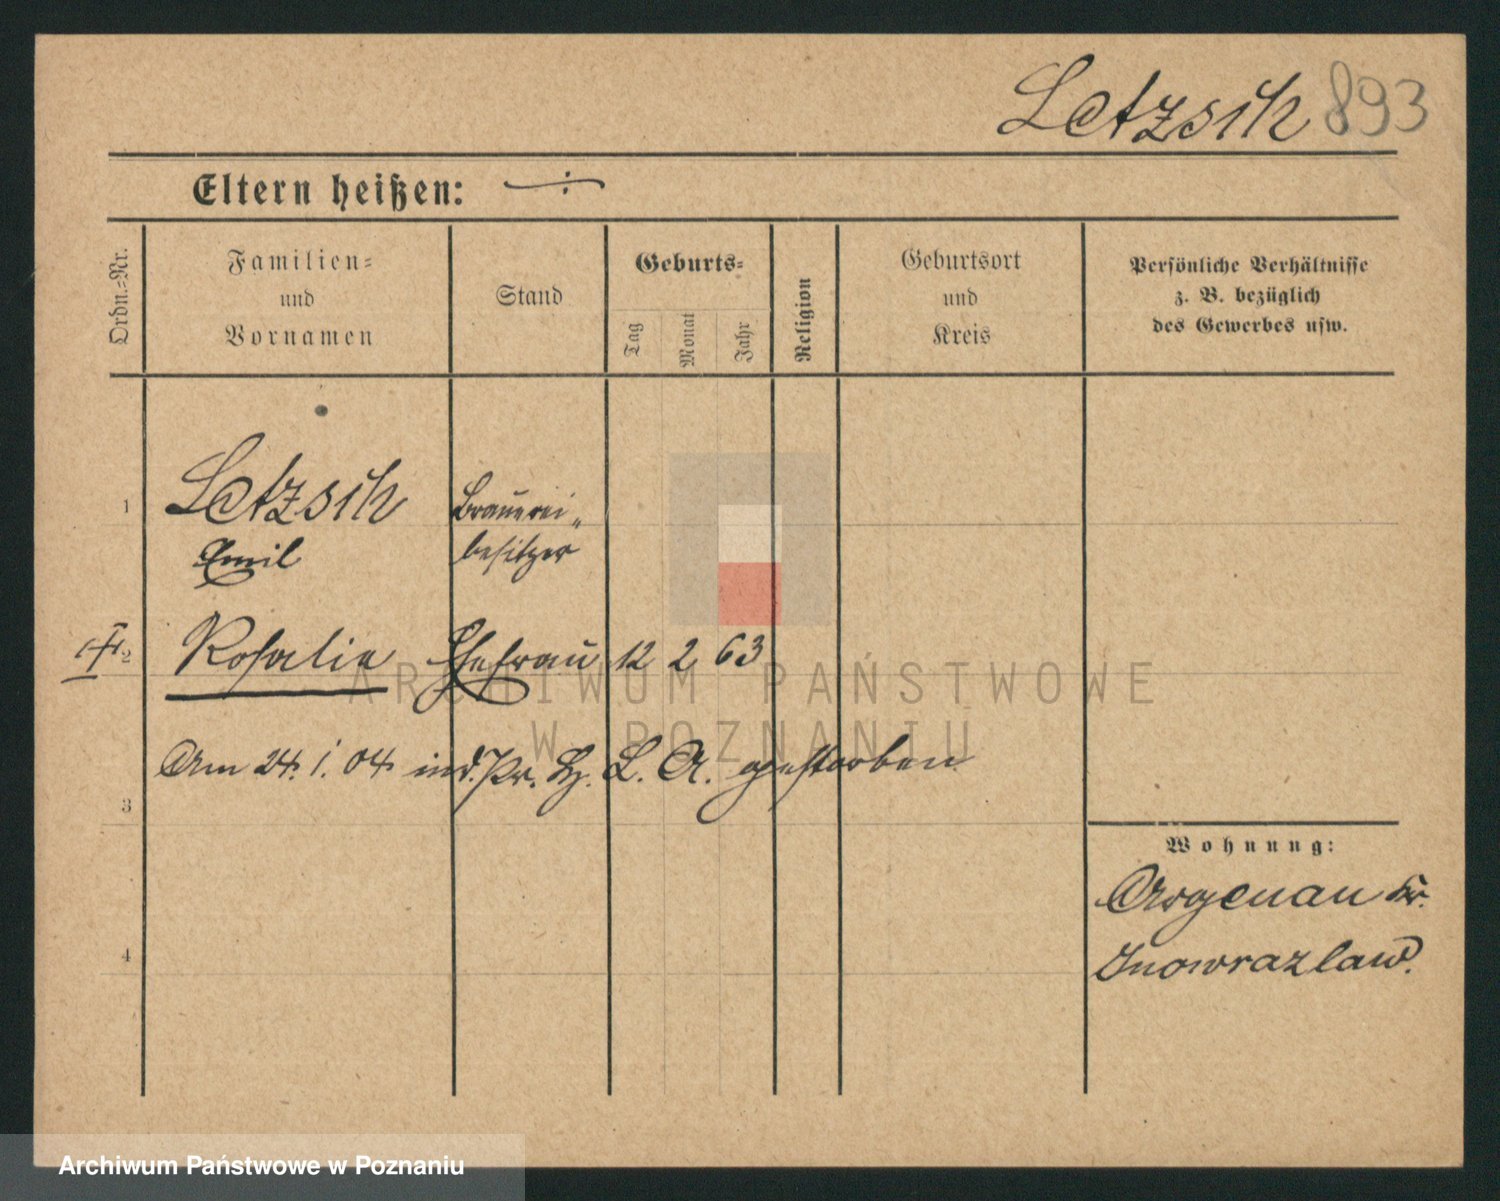 Letzsik 893
Eltern heißen: ÷
Ordn.=Nr.
Familien=
und
Vornamen
Stand
Geburts=
Tag
Monat
Jahr
Religion
Geburtsort
und
Kreis
Persönliche Verhältnisse
z. B. bezüglich
des Gewerbes usw.
1 Letzsik Brauerei-
Emil besitzer
2 Rosalie Ehefrau 12 2 63
Am 24. 1. 04 in d. Pr. H. L. A. gestorben
3
Wohnung:
Argenau Kr.
4 Inowrazlaw.
ARCHIWUM PAŃSTWOWE
W POZNANIU
Archiwum Państwowe w Poznaniu